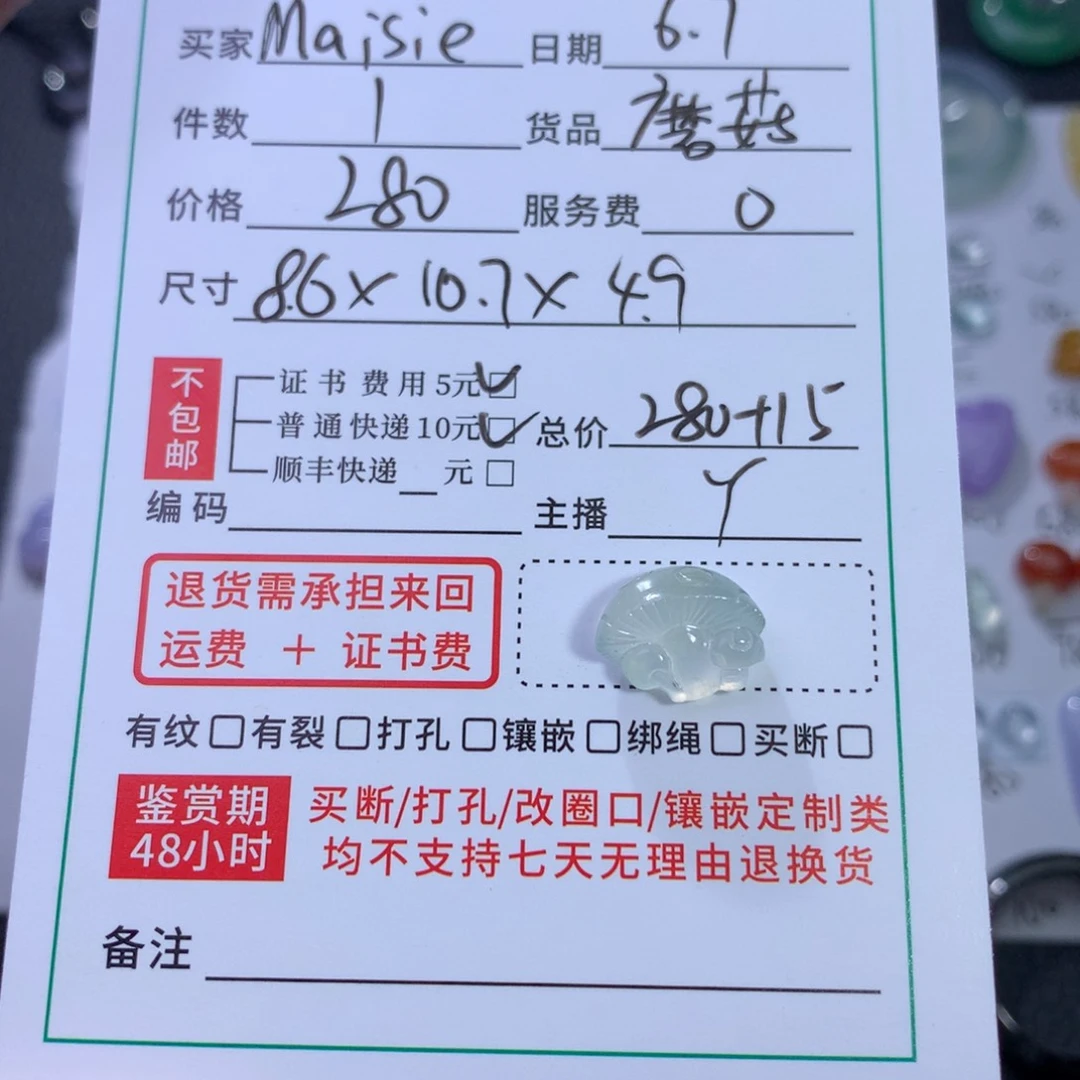 买家 Maisie 日期 6.7
件数 1 货品 蘑菇
价格 280 服务费 0
尺寸 8.6×10.7×4.9
不包邮
证书费用5元☑
普通快递10元☑ 总价 280+15
顺丰快递__元□
编码 主播 Y
退货需承担来回
运费 + 证书费
有纹□有裂□打孔□镶嵌□绑绳□买断□
鉴赏期
48小时
买断/打孔/改圈口/镶嵌定制类
均不支持七天无理由退换货
备注